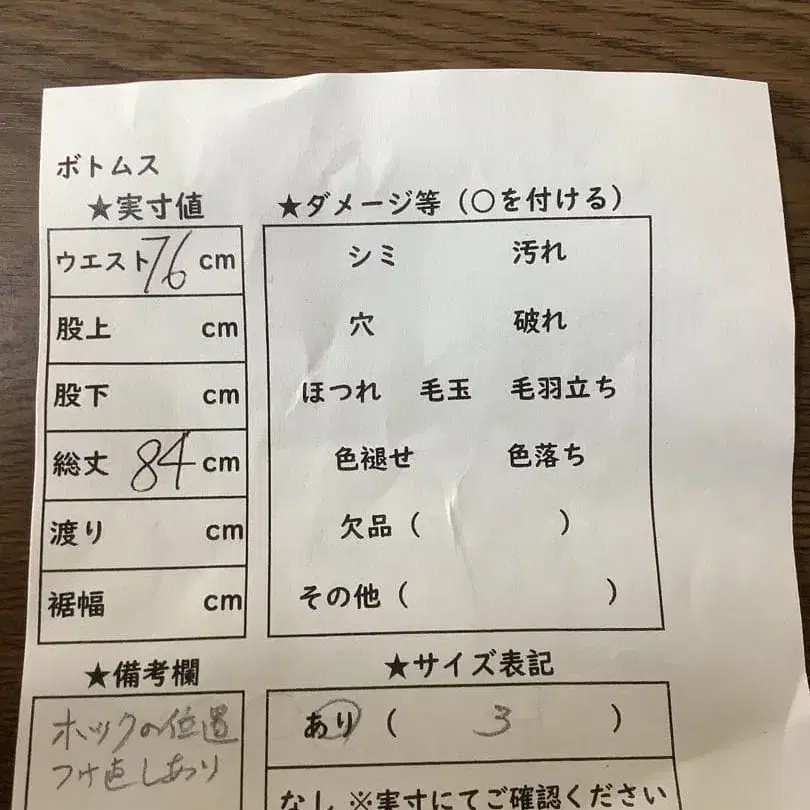 ボトムス
★実寸値
ウエスト 76 cm
股上 cm
股下 cm
総丈 84 cm
渡り cm
裾幅 cm
★ダメージ等（○を付ける）
シミ 汚れ
穴 破れ
ほつれ 毛玉 毛羽立ち
色褪せ 色落ち
欠品（ ）
その他（ ）
★備考欄
ホックの位置
つけ直しあり
★サイズ表記
あり（ 3 ）
なし ※実寸にてご確認ください